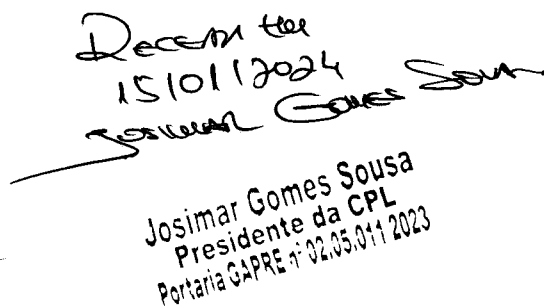 Recebi em
15/01/2024
Josimar Gomes Sousa
Josimar Gomes Sousa
Presidente da CPL
Portaria GAPRE nº 02.05.011 2023